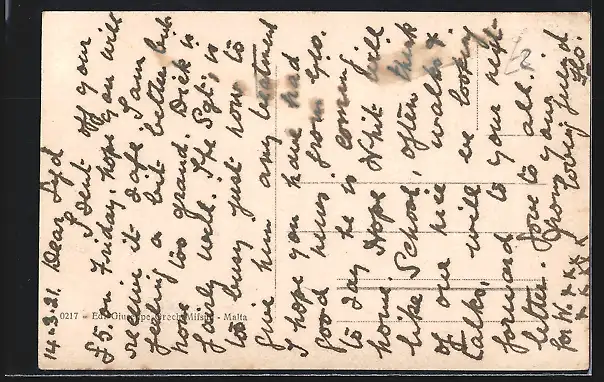 14-3-21. Dear Syd
I sent off your
£5. on Friday, hope you will
receive it safe I am
feeling a bit better but
not too grand. Dick is
fairly well. The Sgt, is
too busy just now to
give him any treatment
I hope you have had
good news from Geo.
to say he is coming
home Hope Whit will
like School, often think
of our nice walks &
talks, will be looking
forward to your next
letter. Love to all
from yours
for W. x x x x x
Flo.
£2
0217 - Ed. Giuseppe Grech Mifsud - Malta